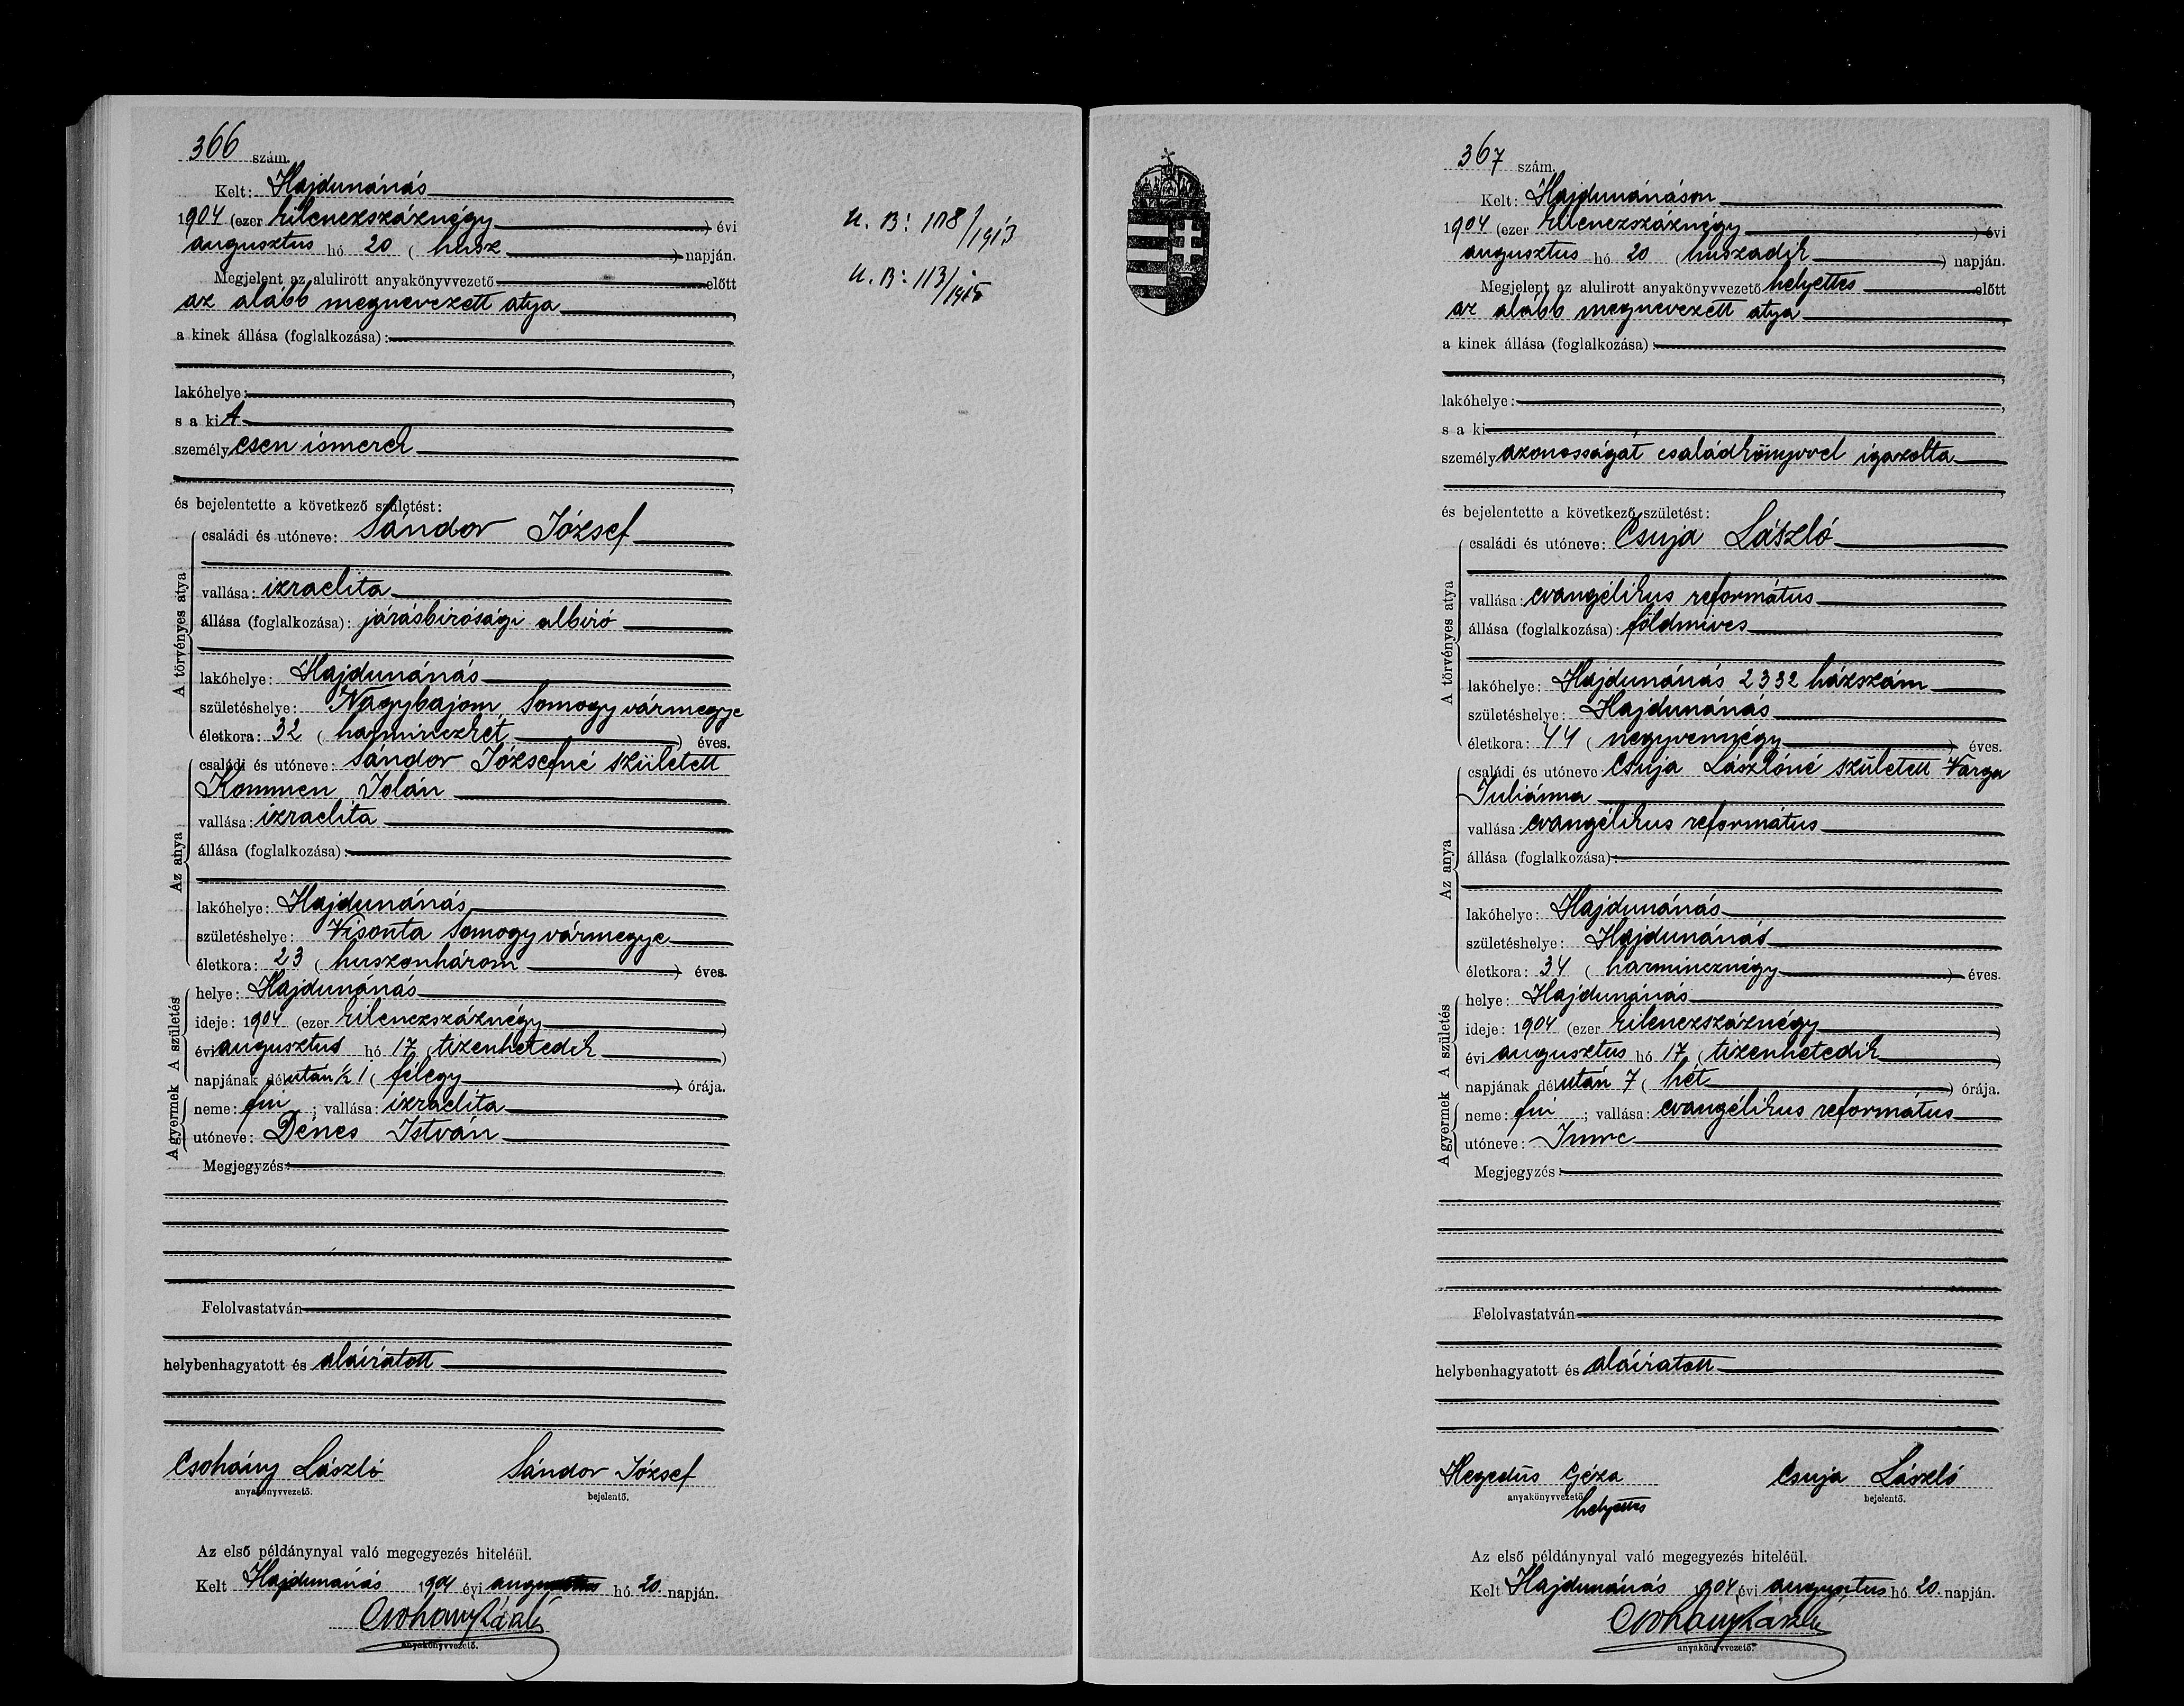 366 szám.
Kelt: Hajdunánás
1904 (ezer kilenczszáznégy ) évi
augusztus hó 20 ( husz ) napján.
Megjelent az alulirott anyakönyvvezető előtt
az alább megnevezett atya ,
a kinek állása (foglalkozása):
,
lakóhelye: ,
s a kit
személyesen ismerek
,
és bejelentette a következő születést:
A törvényes atya
családi és utóneve: Sándor József
vallása: izraelita
állása (foglalkozása): járásbirósági albiró
lakóhelye: Hajdunánás
születéshelye: Nagybajom Somogyvármegye
életkora: 32 ( harminczkét ) éves.
Az anya
családi és utóneve: Sándor Józsefné született
Jolán
vallása: izraelita
állása (foglalkozása):
lakóhelye: Hajdunánás
születéshelye: Visonta Somogyvármegye
életkora: 23 ( huszonhárom ) éves.
A születés
helye: Hajdunánás
ideje: 1904 (ezer kilenczszáznégy )
évi augusztus hó 17 ( tizenhetedik )
napjának délután ½ 1 ( félegy ) órája.
A gyermek
neme: fiu ; vallása: izraelita
utóneve: Dénes István
Megjegyzés:
Felolvastatván
helybenhagyatott és aláiratott
Csohány László
anyakönyvvezető.
Sándor József
bejelentő.
Az első példánynyal való megegyezés hiteléül.
Kelt Hajdunánás 1904 évi augusztus hó 20. napján.
Csohány László
anyakönyvvezető.
U. B: 108/1913
U. B: 113/1915
367 szám.
Kelt: Hajdunánáson
1904 (ezer kilenczszáznégy ) évi
augusztus hó 20 ( huszadik ) napján.
Megjelent az alulirott anyakönyvvezető helyettes előtt
az alább megnevezett atya ,
a kinek állása (foglalkozása):
,
lakóhelye: ,
s a ki
személyazonosságát családkönyvvel igazolta
,
és bejelentette a következő születést:
A törvényes atya
családi és utóneve: Csuja László
vallása: evangélikus református
állása (foglalkozása): földmives
lakóhelye: Hajdunánás 2332 házszám
születéshelye: Hajdunánás
életkora: 44 ( negyvennégy ) éves.
Az anya
családi és utóneve Csuja Lászlóné született Varga
Juliánna
vallása: evangélikus református
állása (foglalkozása):
lakóhelye: Hajdunánás
születéshelye: Hajdunánás
életkora: 34 ( harmincznégy ) éves.
A születés
helye: Hajdunánás
ideje: 1904 (ezer kilenczszáznégy )
évi augusztus hó 17 ( tizenhetedik )
napjának délután 7 ( hét ) órája.
A gyermek
neme: fiu ; vallása: evangélikus református
utóneve: Imre
Megjegyzés:
Felolvastatván
helybenhagyatott és aláiratott
Hegedüs Géza
anyakönyvvezető
helyettes
Csuja László
bejelentő.
Az első példánynyal való megegyezés hiteléül.
Kelt Hajdunánás 1904 évi augusztus hó 20. napján.
Csohány László
anyakönyvvezető.